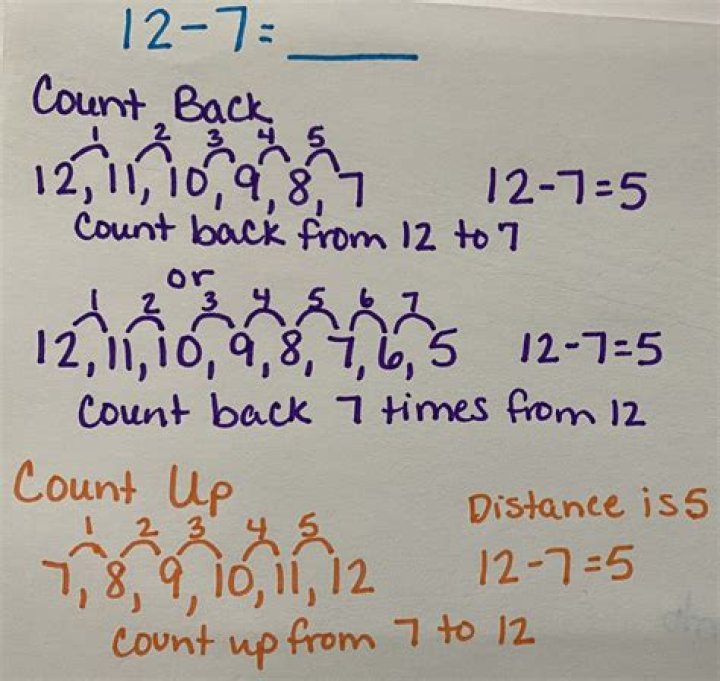 12-7= ______
Count Back
1 2 3 4 5
12, 11, 10, 9, 8, 7 12-7=5
Count back from 12 to 7
or
1 2 3 4 5 6 7
12, 11, 10, 9, 8, 7, 6, 5 12-7=5
Count back 7 times from 12
Count Up
Distance is 5
1 2 3 4 5
7, 8, 9, 10, 11, 12 12-7=5
Count up from 7 to 12